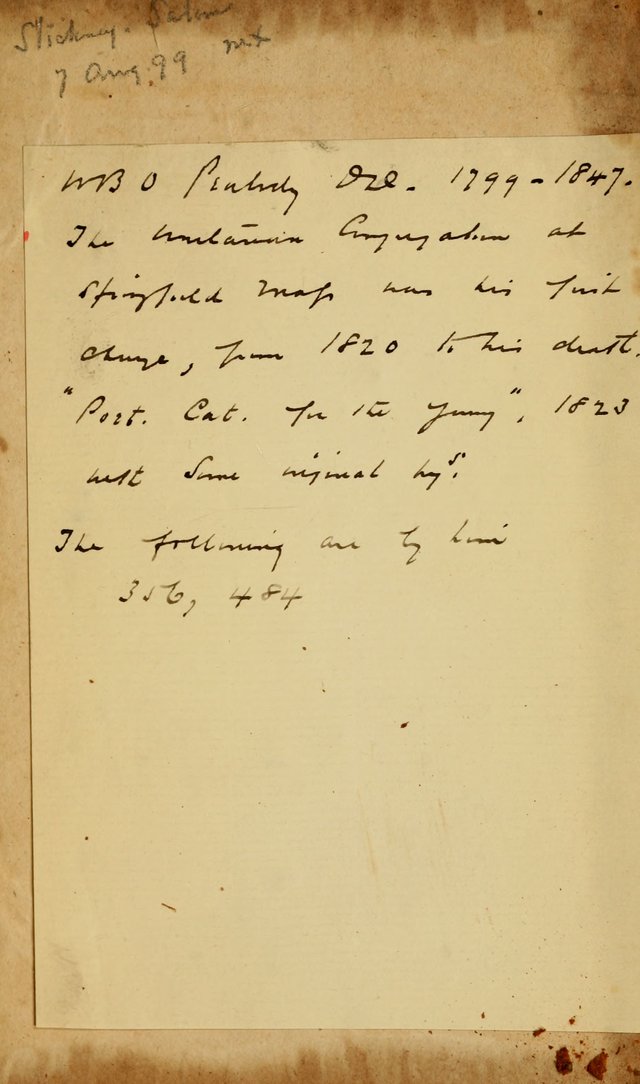 Stickney. Salem
7 Aug 99 net
W B O Peabody D.D. 1799-1847.
The Unitarian Congregation at
Springfield Mass was his first
charge, from 1820 to his death.
"Port. Cat. for the Young", 1823
with some original hys.
The following are by him
356, 484